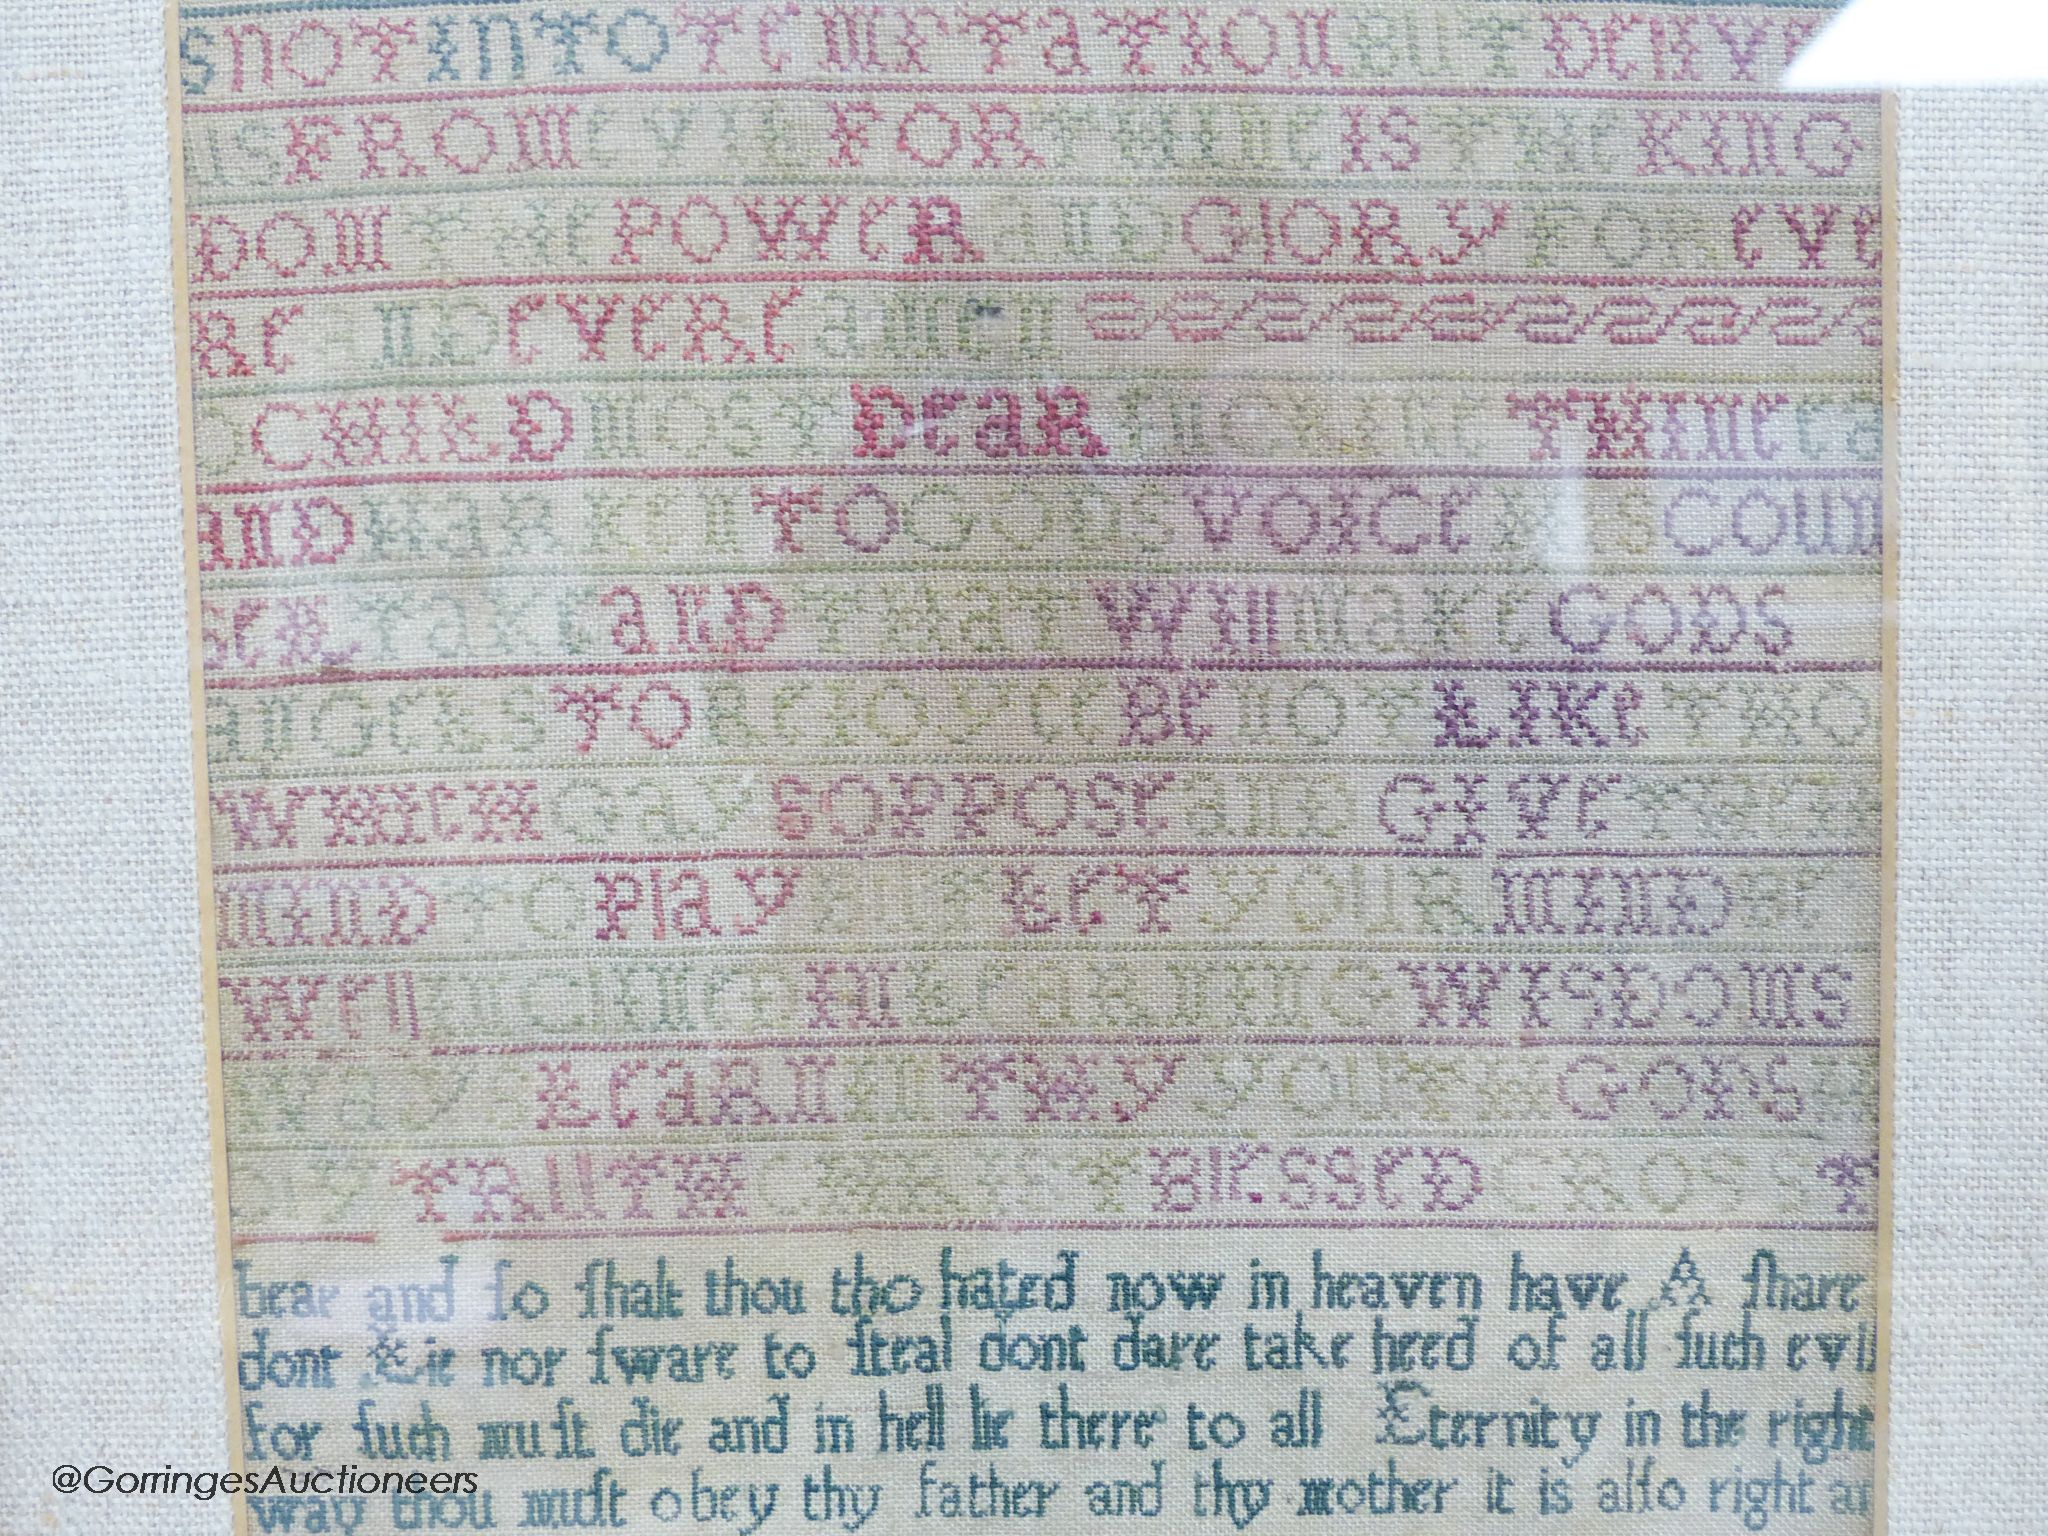 S NOT INTO TEMPTATION BUT DELIVE
US FROM EVIL FOR THINE IS THE KING
DOM THE POWER AND GLORY FOR EVE
RE AND EVERE AMEN
O CHILD MOST DEAR INCLINE THINE EA
AND HARKEN TO GODS VOICE HIS COUN
SER TAKE AND THAT WILL MAKE GODS
ANGEES TO REIOYCE BE NOT LIKE THO
WHICH GAY SOPPOSE AND GIVE THEIR
MIND TO PLAY BUT LET YOUR MIND BE
WELL INCLINE IN LEARNING WISDOMS
WAYS LEARN IN THY YOUTH GODS
TRUTH CHRIST BLESSED CROSS T
bear and ſo ſhalt thou tho hated now in heaven have A ſhare
dont Lie nor ſware to ſteal dont dare take heed of all ſuch evil
for ſuch muſt die and in hell lie there to all Eternity in the right
way thou muſt obey thy father and thy mother it is alſo right
@GorringesAuctioneers